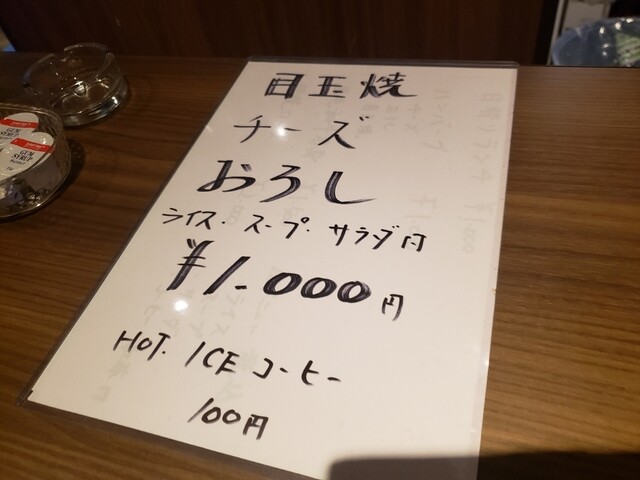 目玉焼
チーズ
おろし
ライス・スープ・サラダ付
¥1.000円
HOT. ICE コーヒー
100円
GUM
SYRUP
GUM
SYRUP